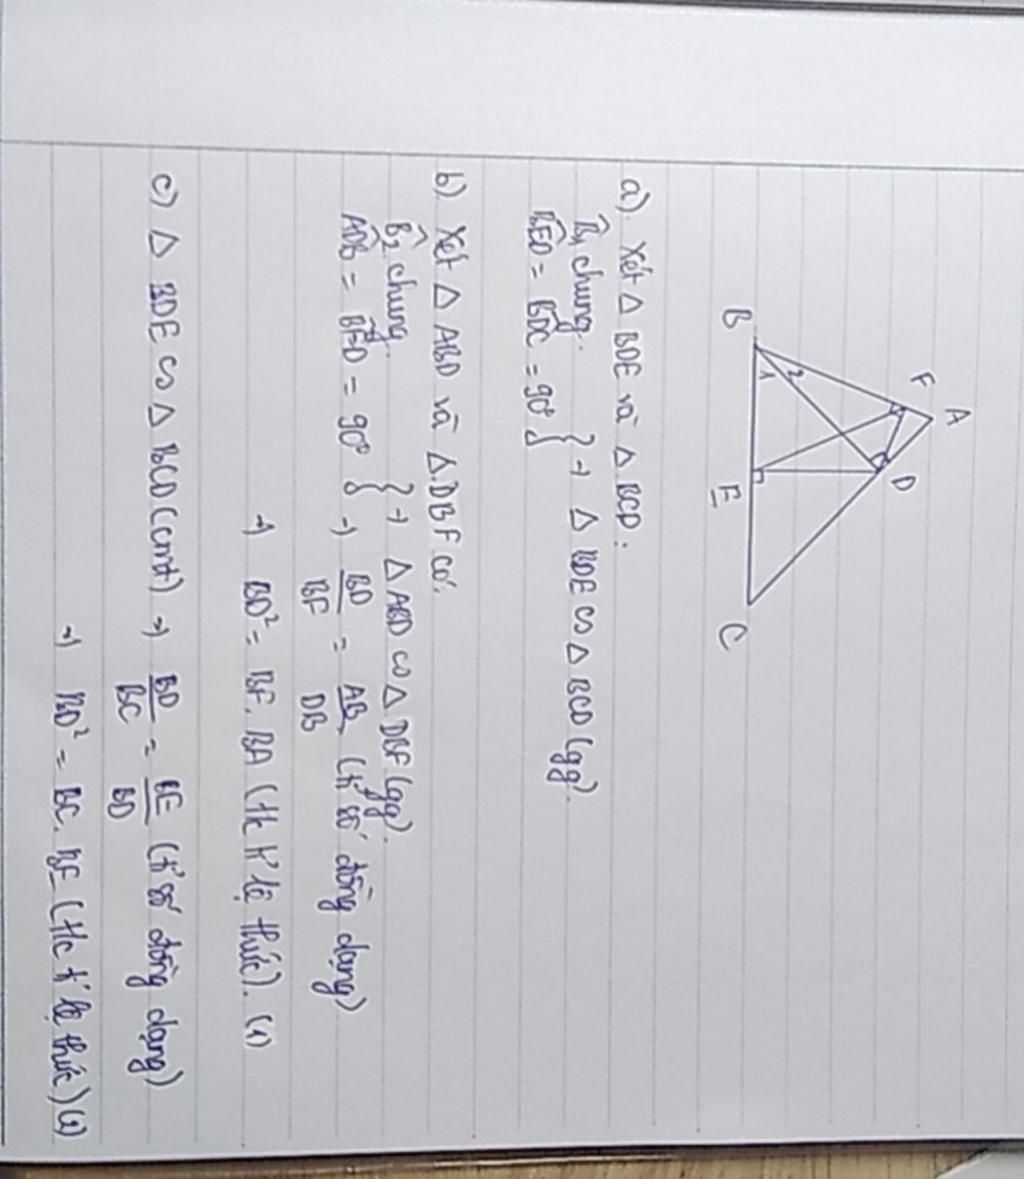 A
F
D
2
1
B
E
C
a) Xét △ BDE và △ BCD:
B̂₁ chung.
BÊD = BD̂C = 90° } → △ BDE ∽ △ BCD (gg).
b) Xét △ ABD và △ DBF có:
B̂₂ chung
AD̂B = BF̂D = 90° } → △ ABD ∽ △ DBF (gg).
→ BD/BF = AB/DB (tỉ số đồng dạng)
→ BD² = BF. BA (t/c tỉ lệ thức). (1)
c) △ BDE ∽ △ BCD (cmt) → BD/BC = BE/BD (tỉ số đồng dạng)
→ BD² = BC. BE (t/c tỉ lệ thức) (2)